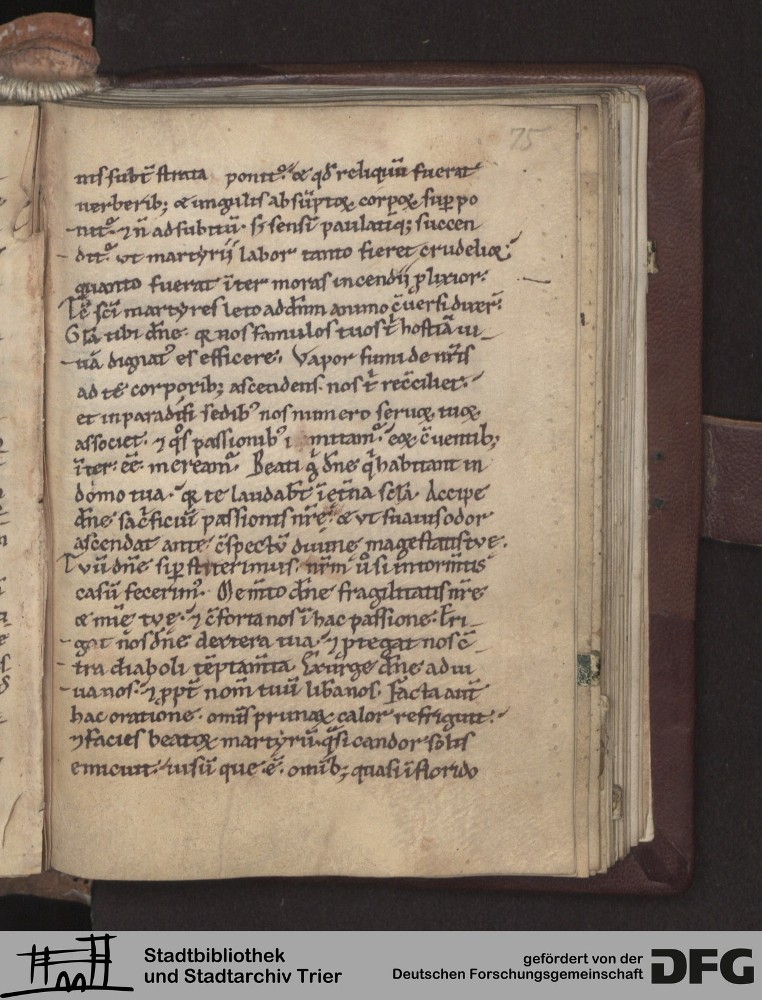 75
nis subt̄ strata ponit᷒ ⁊ qd̄ reliquū fuerat
uerberib; & ungulis absūptoꝝ corpoꝝ sup̄ po
nit᷒. ⁊ n̄ ad subitū. sꝫ sensī paulatiq; succen
dit᷒. ut martyrii labor tanto fieret crudelioꝝ
quanto fuerat īter moras incendii plixior.
Tc̄ sc̄i martyres leto ad dn̄m animo c̄uersi dixer̄.
Gl̄a tibi dn̄e. qr nos famulos tuos ī hostiā ui
uā dignat᷒ es efficere. Vapor fumi de nr̄is
ad te corporib; ascendens. nos t̄ recc̄iliet.
et in paradisi sedib᷒ nos numero seruoꝝ tuoꝝ
associet. ⁊ qͦs passionib᷒ mitam᷒. eoꝝ c̄uentib;
īter ēē meream᷒. Beati g̊ dn̄e qͥ habitant in
domo tua. qr te laudabt̄ ī et̄na sc̄la. Accipe
dn̄e sac̄ficiū passionis nr̄e. & ut suauis odor
ascendat ante c̄spectū diuine magestatis tue.
Tuū dn̄e sīp̄ nr̄m ū si intormtis
casū fecerim᷒. Memto dn̄e fragilitatis nr̄e
& mīe tue. ⁊ c̄forta nos ī hac passione. Eri
gat nos dn̄e dextera tua. ⁊ ptegat nos c̄
tra diaboli tēptam̄ta. Exurge dn̄e adiu
ua nos. ⁊ ppt̄ nom̄ tuū liba nos. Facta aut̄
hac oratione. omīs prunaꝝ calor refriguit.
⁊ facies beatoꝝ martyrū. qͣsi candor solis
emicuit. uisū que ē. omīb; quasi ī florido
Stadtbibliothek
und Stadtarchiv Trier
gefördert von der
Deutschen Forschungsgemeinschaft
DFG